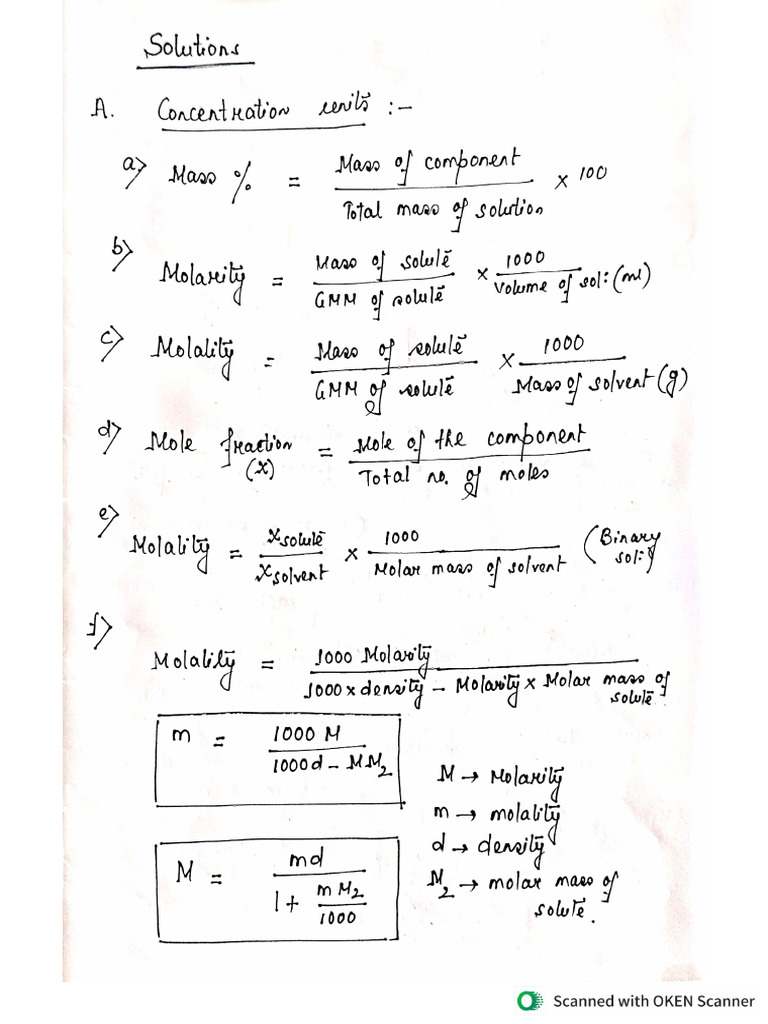 Solutions
A. Concentration units :-
a) Mass % = Mass of component / Total mass of solution × 100
b) Molarity = Mass of solute / GMM of solute × 1000 / Volume of sol:(ml)
c) Molality = Mass of solute / GMM of solute × 1000 / Mass of solvent (g)
d) Mole fraction (x) = Mole of the component / Total no. of moles
e) Molality = x solute / x solvent × 1000 / Molar mass of solvent (Binary sol:)
f) Molality = 1000 Molarity / 1000 × density - Molarity × Molar mass of solute
m = 1000 M / 1000d - MM₂
M → Molarity
m → molality
d → density
M₂ → molar mass of solute.
M = md / 1 + mM₂/1000
Scanned with OKEN Scanner